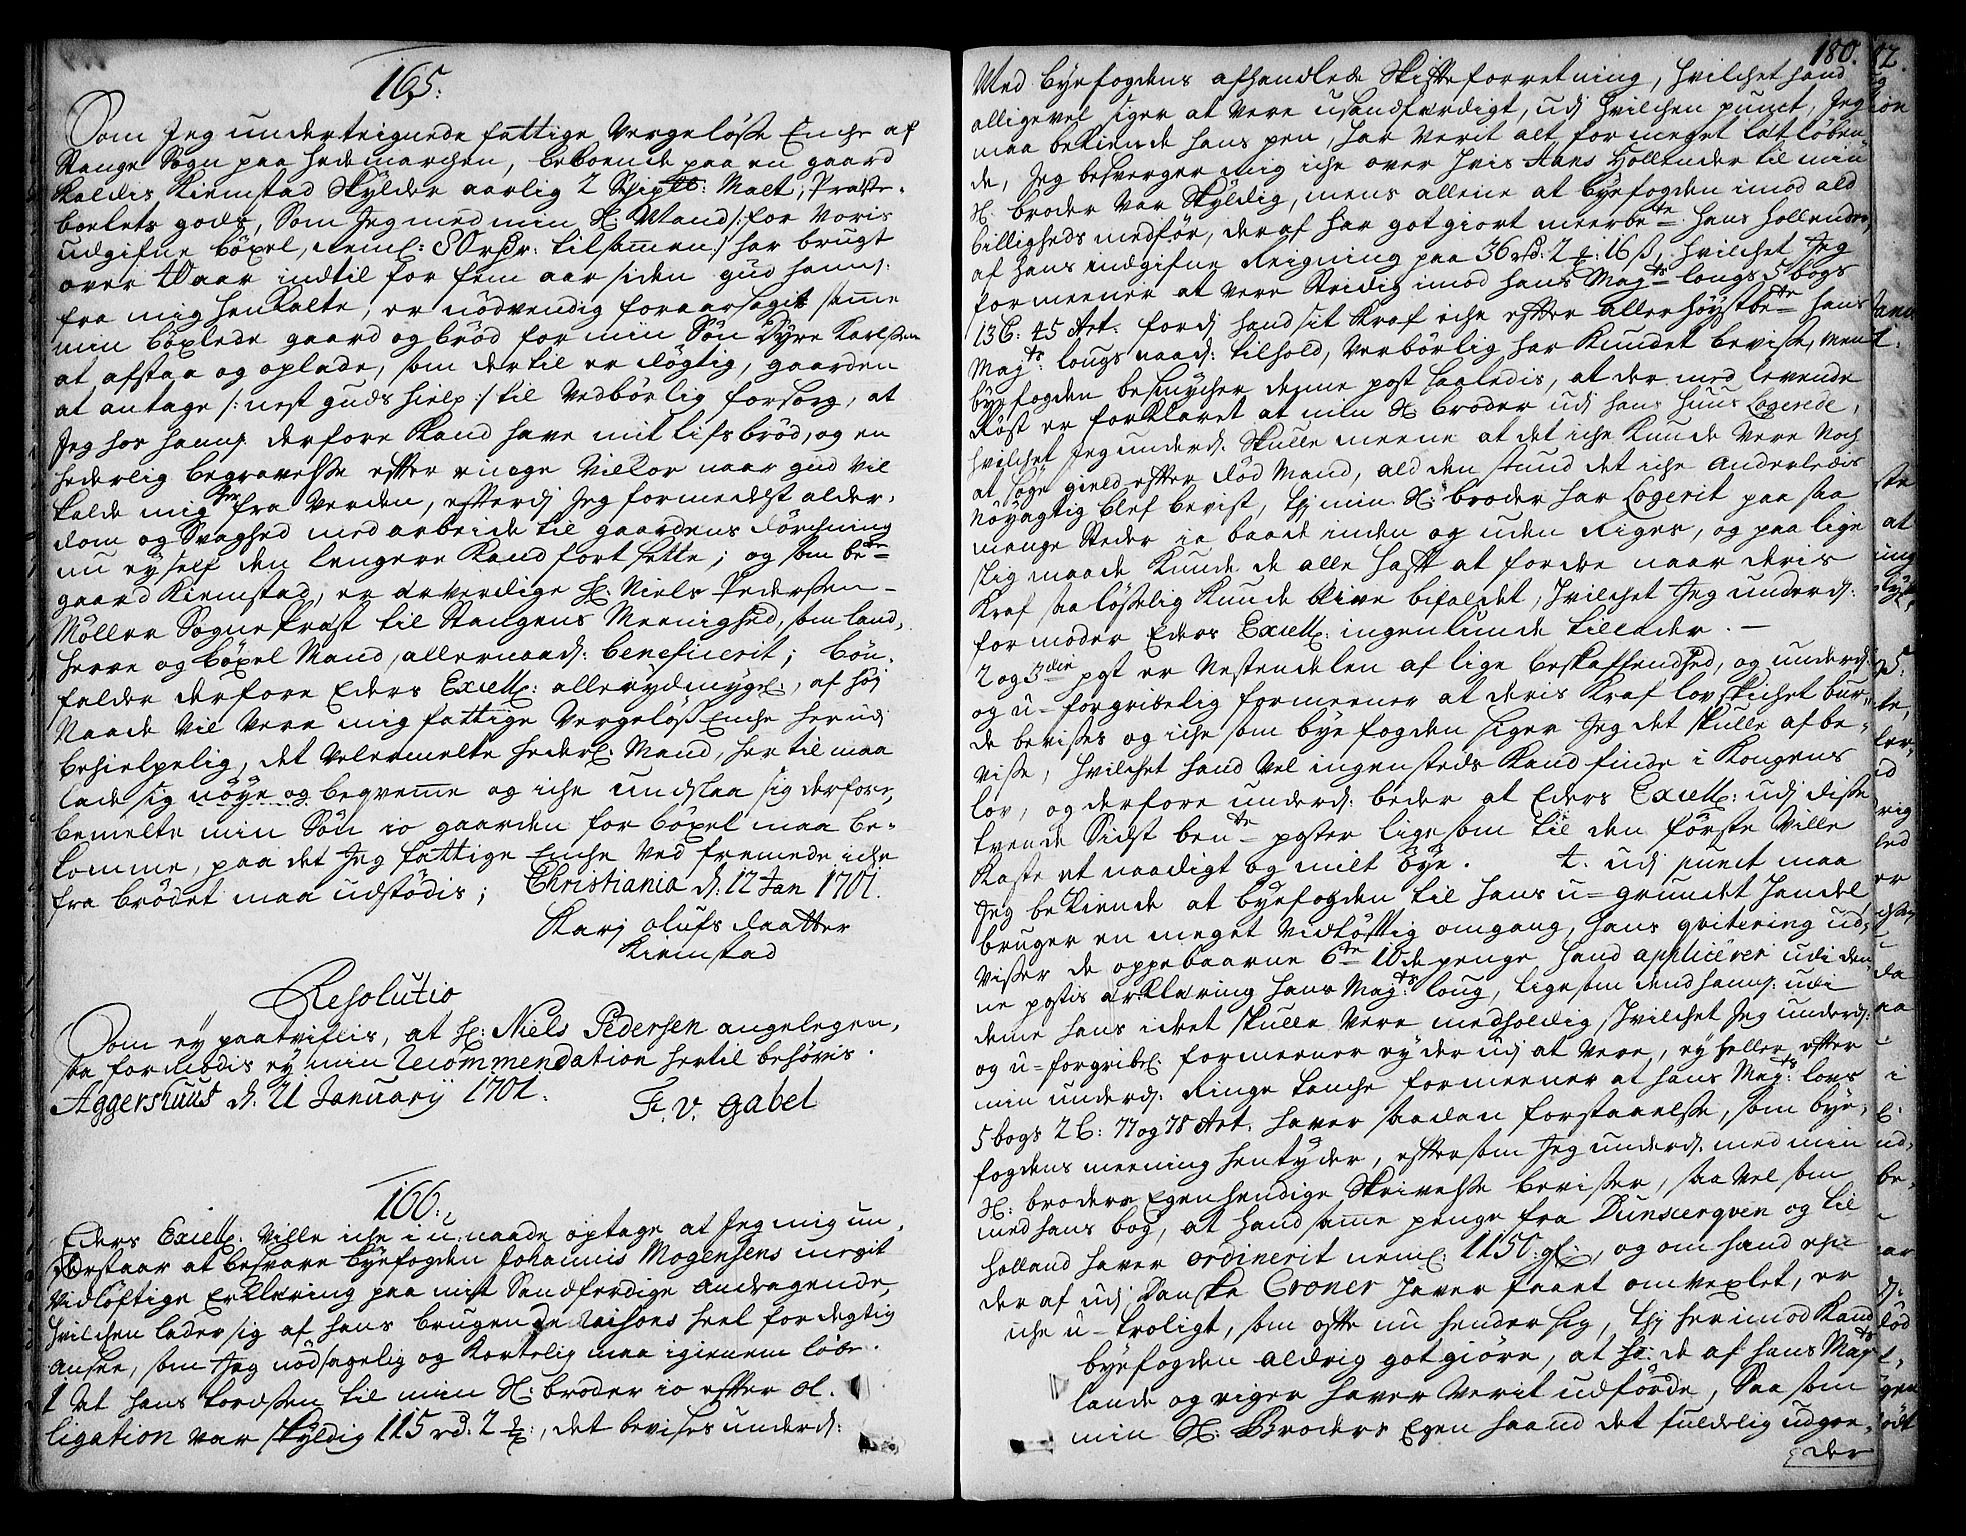 165.
Som Jeg underteignede fattige Vergeløsse Enche af
Stange Sogn paa Hedemarchen, beboende paa en gaard
Kaldis Kiemstad Skylder aarlig 2 Schip ℔: Malt, Præste-
boelets gods, Som Jeg med min Sl. Mand /: for Voris
udgifne böxel, neml: 80 rdr: tilsamen :/ har brugt
over 40 aar indtil for fem aar siden gud ham
fra mig henkalte, er nödvendig foraarsagit same
min böxlede gaard og bröd for min Sön Syver Karlssen
at afstaa og oplade, som dertil er dögtig, gaarden
at antage /: nest guds hielp :/ til Vedbörlig forsorg, at
Jeg hos ham derfore Kand have mit lifs bröd, og en
hederlig begravelsse effter ringe Vilkor naar gud vil
kalde mig her fra Verden, effterdj Jeg formedelst alder-
dom og Svaghed med arbeide til gaardens dörchning
nu ey self den lengere Kand fortsette; og som bete
gaard Kiemstad, er ærverdige Hr. Niels Pederssen
Möller Sogne Præst til Stangens Meenighed, som land-
herre og böxel Mand, allernaadj: beneficerit; bön-
falder derfore Eders Excell: allerydmygel, af höj
Naade vil vere mig fattige Vergelöss Enche herudj
behielpelig, det velermelte hederl: Mand, her til maa
lade sig nöye og begveme og iche undslaa sig derfore,
bemelte min Sön io gaarden for böxel maa be-
komme, paa det Jeg fattige Enche ved fremede iche
fra brödet maa udstödis; Christiania d. 12 Jan 1701.
Karj olufs daatter
Kiemstad
Resolutio
Som ey paatviflis, at Hr: Niels Pedersen angelegen,
saa formodis ey min Recommendation hertil behövis.
Aggershuus d. 21 Januarij 1701.
F. V. Gabel
166.
Eders Excell. ville iche i u-naade optage at Jeg mig un-
derstaar at besvare byefogden Johannis Mogensens megit
vidlöftige Erklæring paa mit Sandferdige andragende,
hvilchen lader sig af hans brugende raisons heel fordegtig
ansee, som Jeg nödsagelig og Kortelig maa igienem löbe.
1 At hans Lordssen til min Sl: broder io effter ol-
ligation var skyldig 115 rd: 2 , det bevises underdj:
180.
Med byefogdens afhandlede Skiffteforretning, hvilchet hand
alligevel siger at vere usandfærdigt, udj hvilchen punct, Jeg
maa bekiende hans pen, har verit alt for meget latt löben-
de, Jeg besverger mig iche over hvis Hans Hollender til min
Sl. broder var skyldig, mens allene at byefogden imod ald
billigheds medför, deraf har godtgiort meerbete Hans Hollender,
af hans indgifne Reigning paa 36 rd: 2 : 16 ß, hvilchet Jeg
formeener at vere Stridig imod hans Majts lougs 5 bogs
13 C: 45 Art: fordj hand sit Kraf iche effter allerhöystbete hans
Majts: lougs naadj: tilhold, Vedbörlig har Kundet bevisse, men
byefogden besmycher denne post saaledis, at der med levende
Röst er forklaret at min Sl broder udj hans huus Logerede,
hvilchet Jeg underdj. Skulle meene at det iche Kunde vere noch
at söge gield effter död Mand, ald den stund det iche anderledis
nöyagtig blef bevist, thj min Sl: broder har Logerit paa saa
mange Steder io baade inden og uden Riget, og paa lige
slig maade Kunde de alle hafft at fordre naar deris
Kraf saa lösselig Kunde blive bifaldet, hvilchet Jeg underdj:
formoder Eders Excell: ingenlunde tillader. —
2 og 3die post er nestendelen af lige beskaffenhed, og underdj
og u-forgribelig formeener at deris Kraf lovskichet bur-
de bevisses og iche som byefogden siger Jeg det skulle af be-
visse, hvilchet hand vel ingensteds Kand finde i Kongens
lov, og derfore underdj: beder at Eders Excell: udj disse
tvende Sidst bente poster ligesom til den förste ville
Kaste et naadigt og mildt öye. 4. udj punct maa
Jeg bekiende at byefogden til hans u-grundet handel
bruger en meget vidlöfftig omgang, hans qvitering ud-
visser de oppebaarne 6te 10de penge hand applicerer udi den-
ne postis erklæring hans Majts: loug, ligesom dend ham: udi
deme hans idret skulle vere medholdig hvilchet Jeg underdj:
og u-forgribel: formeener ey der udj at vere, ey heller effter
min underdj: Ringe tanche formeener at hans Majts: lovs
5 bogs 2 C: 77 og 78 Art. haver saadan forstaaelsse, som bye-
fogdens meening hentyder, effter som Jeg underdj. med min
Sl: broders Egenhendige Skrivelsse bevisser, saa vel som
med hans bog, at hand same penge fra Dunscerqven og til
Holland haver ordinerit neml: 1150: gl:, og om hand epe
der af udj danske Croner haver faaet omvexlet, er
iche u-troligt, som offte nu hender sig, thj herimod Kand
byefogden aldrig gotgiöre, at de af hans Majts
lande og riger haver verit udförde, Saa som
min Sl: Broders Egen haand det fuldelig udgee-
der